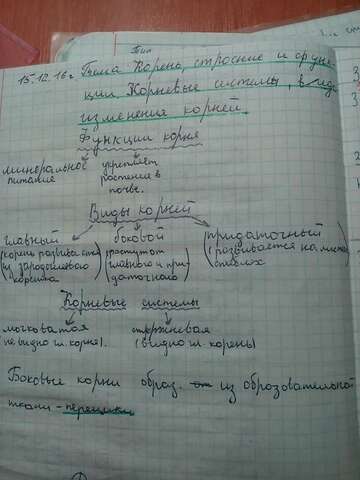 Тип
15.12.16г Тема Корень, строение и функ-
ции. Корневые системы, вид
изменения корней.
Функции корня
минеральное укрепляет
питание растение в
почве.
Виды корней
главный боковой придаточный
(корень развивается (растут от (развивается на листьях
из зародошевого главного и при- стеблях
корешка) даточного)
Корневые системы
мочковатая стержневая
(не видно гл. корня). (видно гл. корень)
Боковые корни образ. от из образовательной
ткани - перецикл